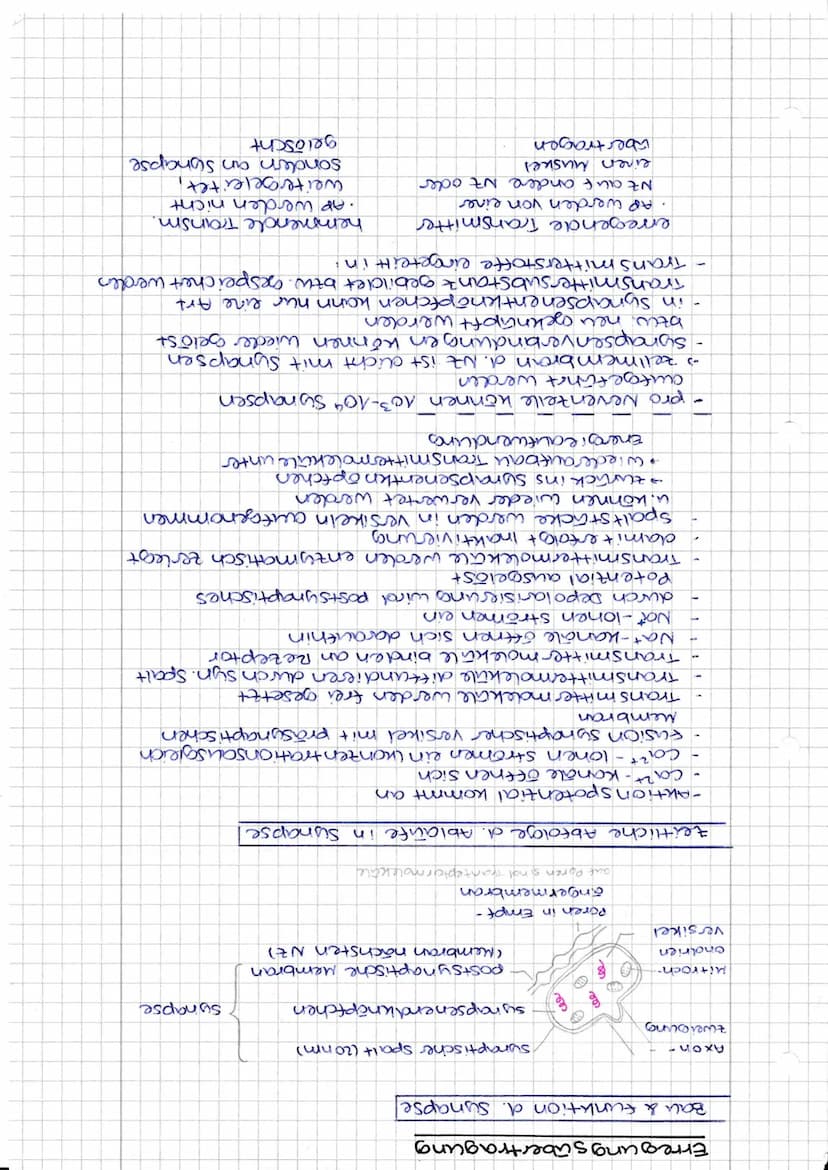 Erregungsübertragung
Bau & Funktion d. Synapse
Axon-
zweigung
Mitroch-
ondrien
Versikel
synaptischer Spalt (20nm)
synapsenendknöpfchen
postsynaptische Membran
(Membran nächsten NZ)
Synapse
Poren in Empf-
ängermembran
auf Poren sind
Zeitliche Abfolge d. Abläufe in Synapse
-Aktionspotential kommt an
- Ca²⁺- Kanäle öffnen sich
- Ca²⁺ - Ionen strömen ein (Konzentrationsausgleich
- Fusion synaptischer Versikel mit präsynaptischen
Membran
- Transmittermoleküle werden frei gesetzt
- Transmittermoleküle diffundieren durch syn. Spalt
- Transmittermoleküle binden an Rezeptor
- Na⁺-Kanäle öffnen sich daraufhin
- Na⁺-Ionen strömen ein
- durch Depolarisierung wird postsynaptisches
Potential ausgelöst
- Transmittermoleküle werden enzymatisch zerlegt
- damit erfolgt Inaktivierung
- Spaltstücke werden in Versikeln aufgenommen
u. können wieder verwertet werden
→ zurück ins Synapsenentknöpfchen
• Wiederaufbau Transmittermoleküle unter
Energieaufwendung
- pro Nevenzelle können 10³-10⁴ Synapsen
aufgeführt werden
→ Zellmembran d. NZ ist dicht mit Synapsen
- Synapsenverbandungen können wieder gelöst
bzw. neu geknüpft werden
- in Synapsenentknöpfchen kann nur eine Art
Transmittersubstanz gebildet bzw. gespeichert werden
- Transmitterstoffe eingeteilt in:
erregende Transmitter
· AP werden von einer
NZ auf andere NZ oder
einen Muskel
übertragen
hemmende Transm.
· AP werden nicht
weitergeleitet,
sondern an Synapse
gelöscht